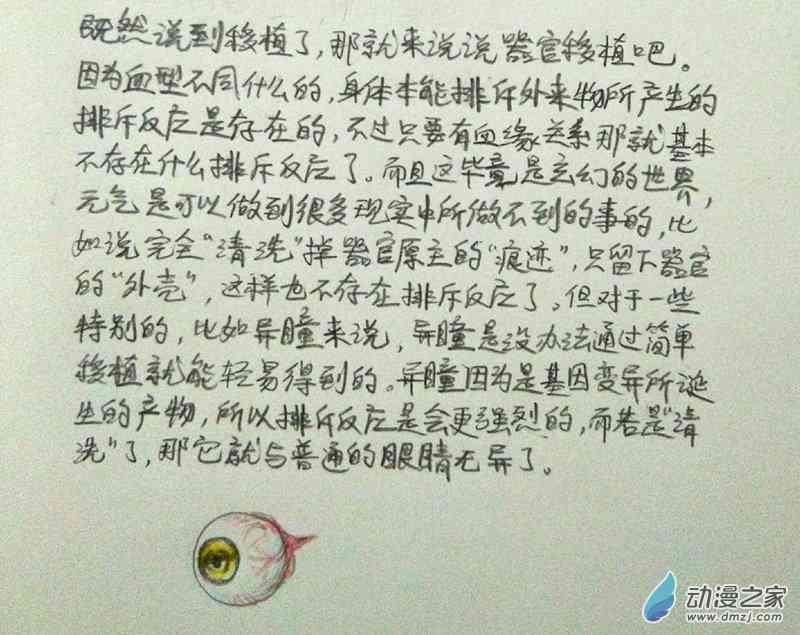 既然说到移植了，那就来说说器官移植吧。
因为血型不同什么的，身体本能排斥外来物所产生的
排斥反应是存在的，不过只要有血缘关系那就基本
不存在什么排斥反应了。而且这毕竟是玄幻的世界，
元气是可以做到很多现实中所做不到的事的，比
如说完全“清洗”掉器官原主的“痕迹”，只留下器官
的“外壳”，这样也不存在排斥反应了。但对于一些
特别的，比如异瞳来说，异瞳是没办法通过简单
移植就能轻易得到的。异瞳因为是基因变异所诞
生的产物，所以排斥反应是会更强烈的，而若是“清
洗”了，那它就与普通的眼睛无异了。
动漫之家
www.dmzj.com